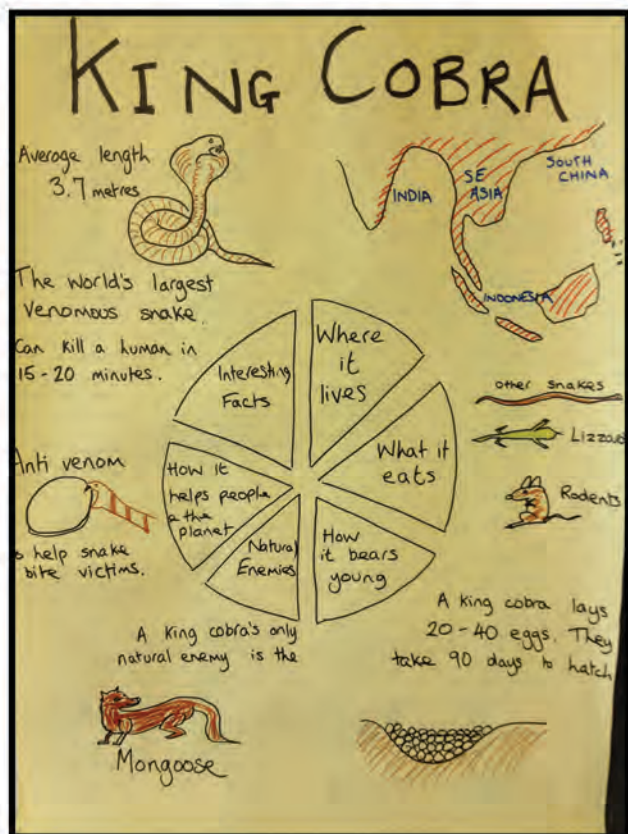 KING COBRA
Average length
3.7 metres
The world's largest
venomous snake.
Can kill a human in
15-20 minutes.
INDIA
SE
ASIA
SOUTH
CHINA
INDONESIA
Interesting
Facts
Where
it
lives
What it
eats
How
it bears
young
Natural
Enemies
How it
helps people
& the
planet
other snakes
Lizzards
Rodents
Anti venom
help snake
bite victims.
A king cobra's only
natural enemy is the
Mongoose
A king cobra lays
20-40 eggs. They
take 90 days to hatch